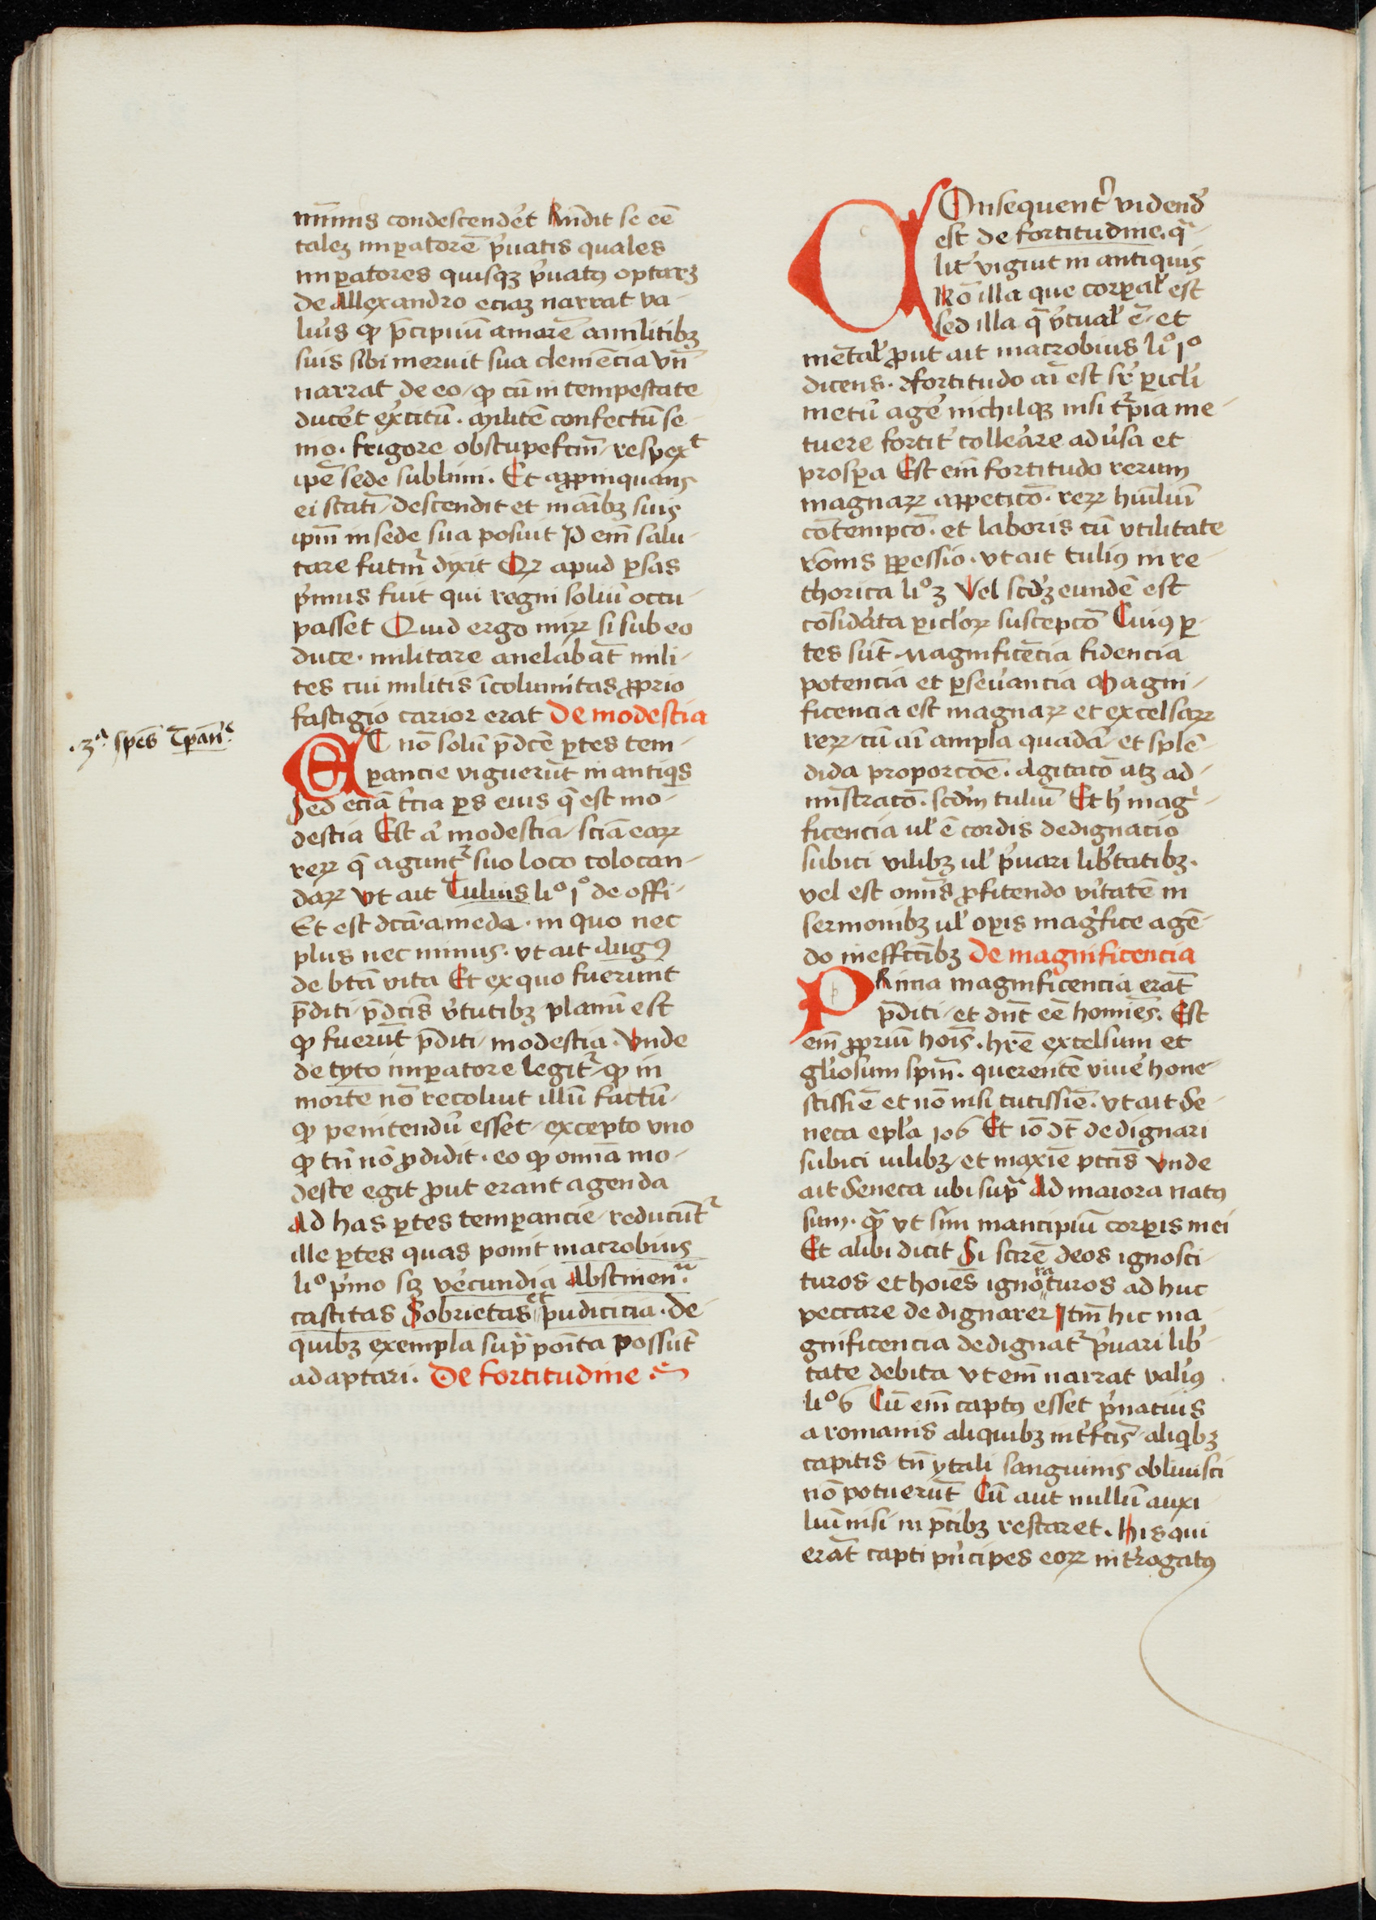 nimis condescend'et Rn̄dit se eē
talez imꝑatorē p'uatis quales
imꝑatores quisqꝫ p'uatꝰ optarꝫ
de Allexandro eciaꝫ narrat va-
lius ꝙ p̄cipuū amorē a militibꝫ
suis sibi meruit sua clemēcia vn̄
narrat de eo / ꝙ cū in tempestate
ducēt ex'citū · militē confectū se-
nio · frigore obstupefc̄m̄ / respexᵗ
ip̄e sede sublimi · Et aꝓpinquans
ei statī / descendit et manibꝫ suis
ip̄m in sede sua posuit Id em̄ salu-
tare futuꝝ dixit Qꝫ apud ꝑsas
p'mus fuit qui regni soliū occu-
passet Quid ergo miꝝ si sub eo
duce · militare anelabāt mili-
tes cui militis īcolumitas ꝓprio
fastigio carior erat De modestia
ET nō solū p̄dc̄e ꝑtes tem-
ꝑancie viguerūt in antiqis
Sed eciā t'cia ꝑs eius q̄ est mo-
destia Est aū modestia / sciā eaꝝ
reꝝ q̄ aguntᷣ suo loco colocan-
daꝝ vt ait Tulius li° 1° de offi-
Et est dc̄ā · a meda · in quo nec
plus nec minus · vt ait Augꝰ
de btā vita Et ex quo fuerunt
p̄diti / p̄dc̄is v'tutibꝫ planū est
ꝙ fuerūt p̄diti / modestia · vnde
de tyto imꝑatore legitᷣ / ꝙ in
morte nō recoliut illū factū /
ꝙ penitendū esset / excepto vno
ꝙ tn̄ nō ꝓdidit · eo ꝙ omīa mo-
deste egit ꝓut erant agenda
Ad has ꝑtes temꝑancie / reducūtᷣ
ille ꝑtes quas ponit macrobius
li° p'mo scꝫ ve'cundia Abstinenᵃ
castitas Sobrietas et pudicicia · de
quibꝫ exempla supᵃ poīta possūt
adaptari · De fortitudine
· 3ᵃ spēs tꝑanᵉ ·
COnsequent' vidend'
est de fortitudine · qᵃ-
lit' viguit in antiquis
Nō illa que corꝑal' est
Sed illa q̄ v'tual' ē · et
mētal' ꝓut ait macrobius li° 1°
dicens · fortitudo aī est sr' ꝑicl'i
metū age' nichilqꝫ nisi t'pia me-
tuere fortit' colle'are adu'sa et
prosꝑa Est em̄ fortitudo rerum
magnaꝝ appeticō · reꝝ hūiliū
cōtempcō · et laboris cū vtilitate
rōnis ꝑpessio · vt ait tuliꝰ in re-
thorica li° 3 Vel scd'ꝫ eundē est
cōsid'ata ꝑicl'oꝝ suscepcō Cuiꝰ ꝑ-
tes sūt · Magnificēcia fidencia
potencia et ꝑseu'ancia Magni-
ficencia est magnaꝝ et excelsaꝝ
reꝝ / cū aī ampla quadā / et splē-
dida proporcōe · Agitacō atꝫ ad-
mistracō · scd'm tuliū Et h' mag'-
ficencia ul' ē cordis dedignacio
subici vilibꝫ ul' p'uari lib'tatibꝫ ·
vel est omīs ꝓfitendo v'itatē in
sermonibꝫ ul' oꝑis mag'fice agē-
do in effc̄ibꝫ De magnificencia
PRima magnificencia erāt
p̄diti / et dn̄t eē homīes · Est
em̄ ꝓpriū hoīs · hr̄e excelsum et
gl'iosum spm̄ · querentē viue' hone-
stissīe et nō nisi tutissīe · vt ait Se-
neca epl'a 106 Et iō dt̄ dedignari
subici uilibꝫ / et maxīe pccīs vnde
ait Seneca ubi supᵃ Ad maiora natꝰ
sum · qᵃ vt sim mancipiū corꝑis mei
Et alibi dicit Si scirē deos ignosci-
turos et hoīes ignoraturos ad huc
peccare dedignarer Itm̄ hic ma-
gnificencia dedignatᷣ p'uari lib'-
tate debita vt em̄ narrat valiꝰ
li° 6 Cū em̄ captꝰ esset p'natiuis
a romanis aliquibꝫ int'fc̄is / aliqibꝫ
capitis / tn̄ ytali sanguinis obliuisci
nō potuerūt Cū aut nullū auxi-
liū nisi in p̄cibꝫ restaret · his qui
erāt capti p'ncipes eoꝝ int'rogatꝰ